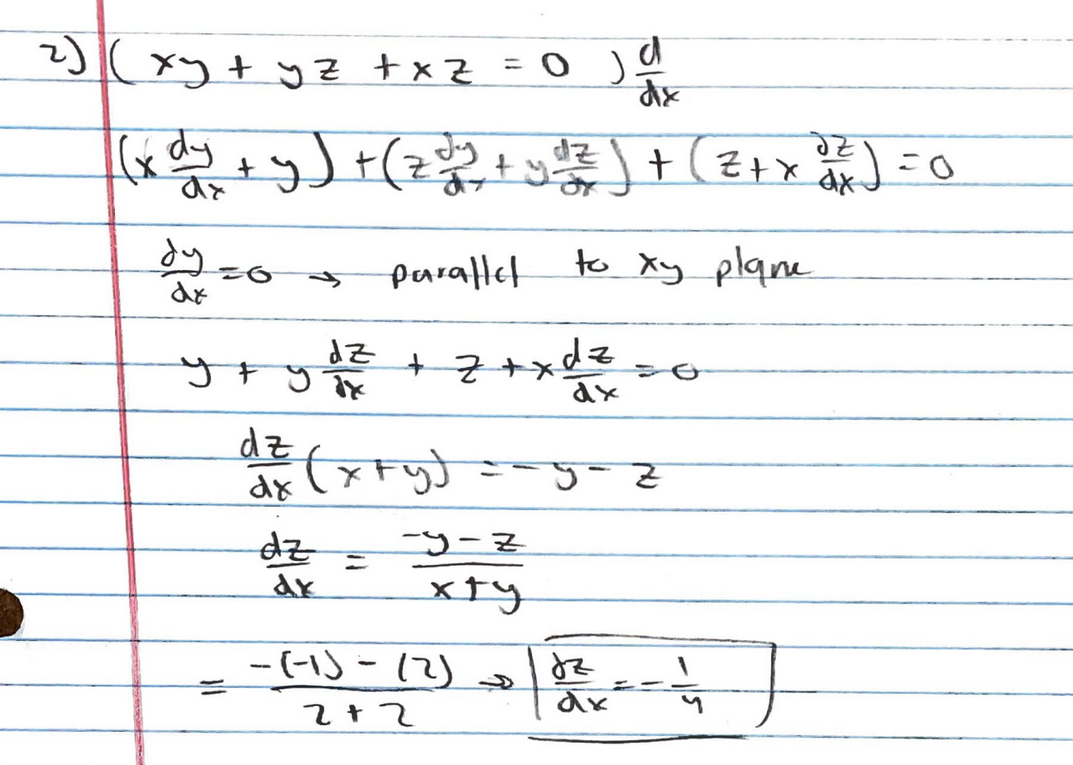 2) ( xy + yz + xz = 0 ) d/dx
(x dy/dx + y) + (z dy/dx + y dz/dx) + (z + x dz/dx) = 0
dy/dx = 0 → parallel to xy plane
y + y dz/dx + z + x dz/dx = 0
dz/dx (x + y) = -y - z
dz/dx = (-y - z)/(x + y)
= (-(-1) - (2))/(2 + 2) → dz/dx = -1/4